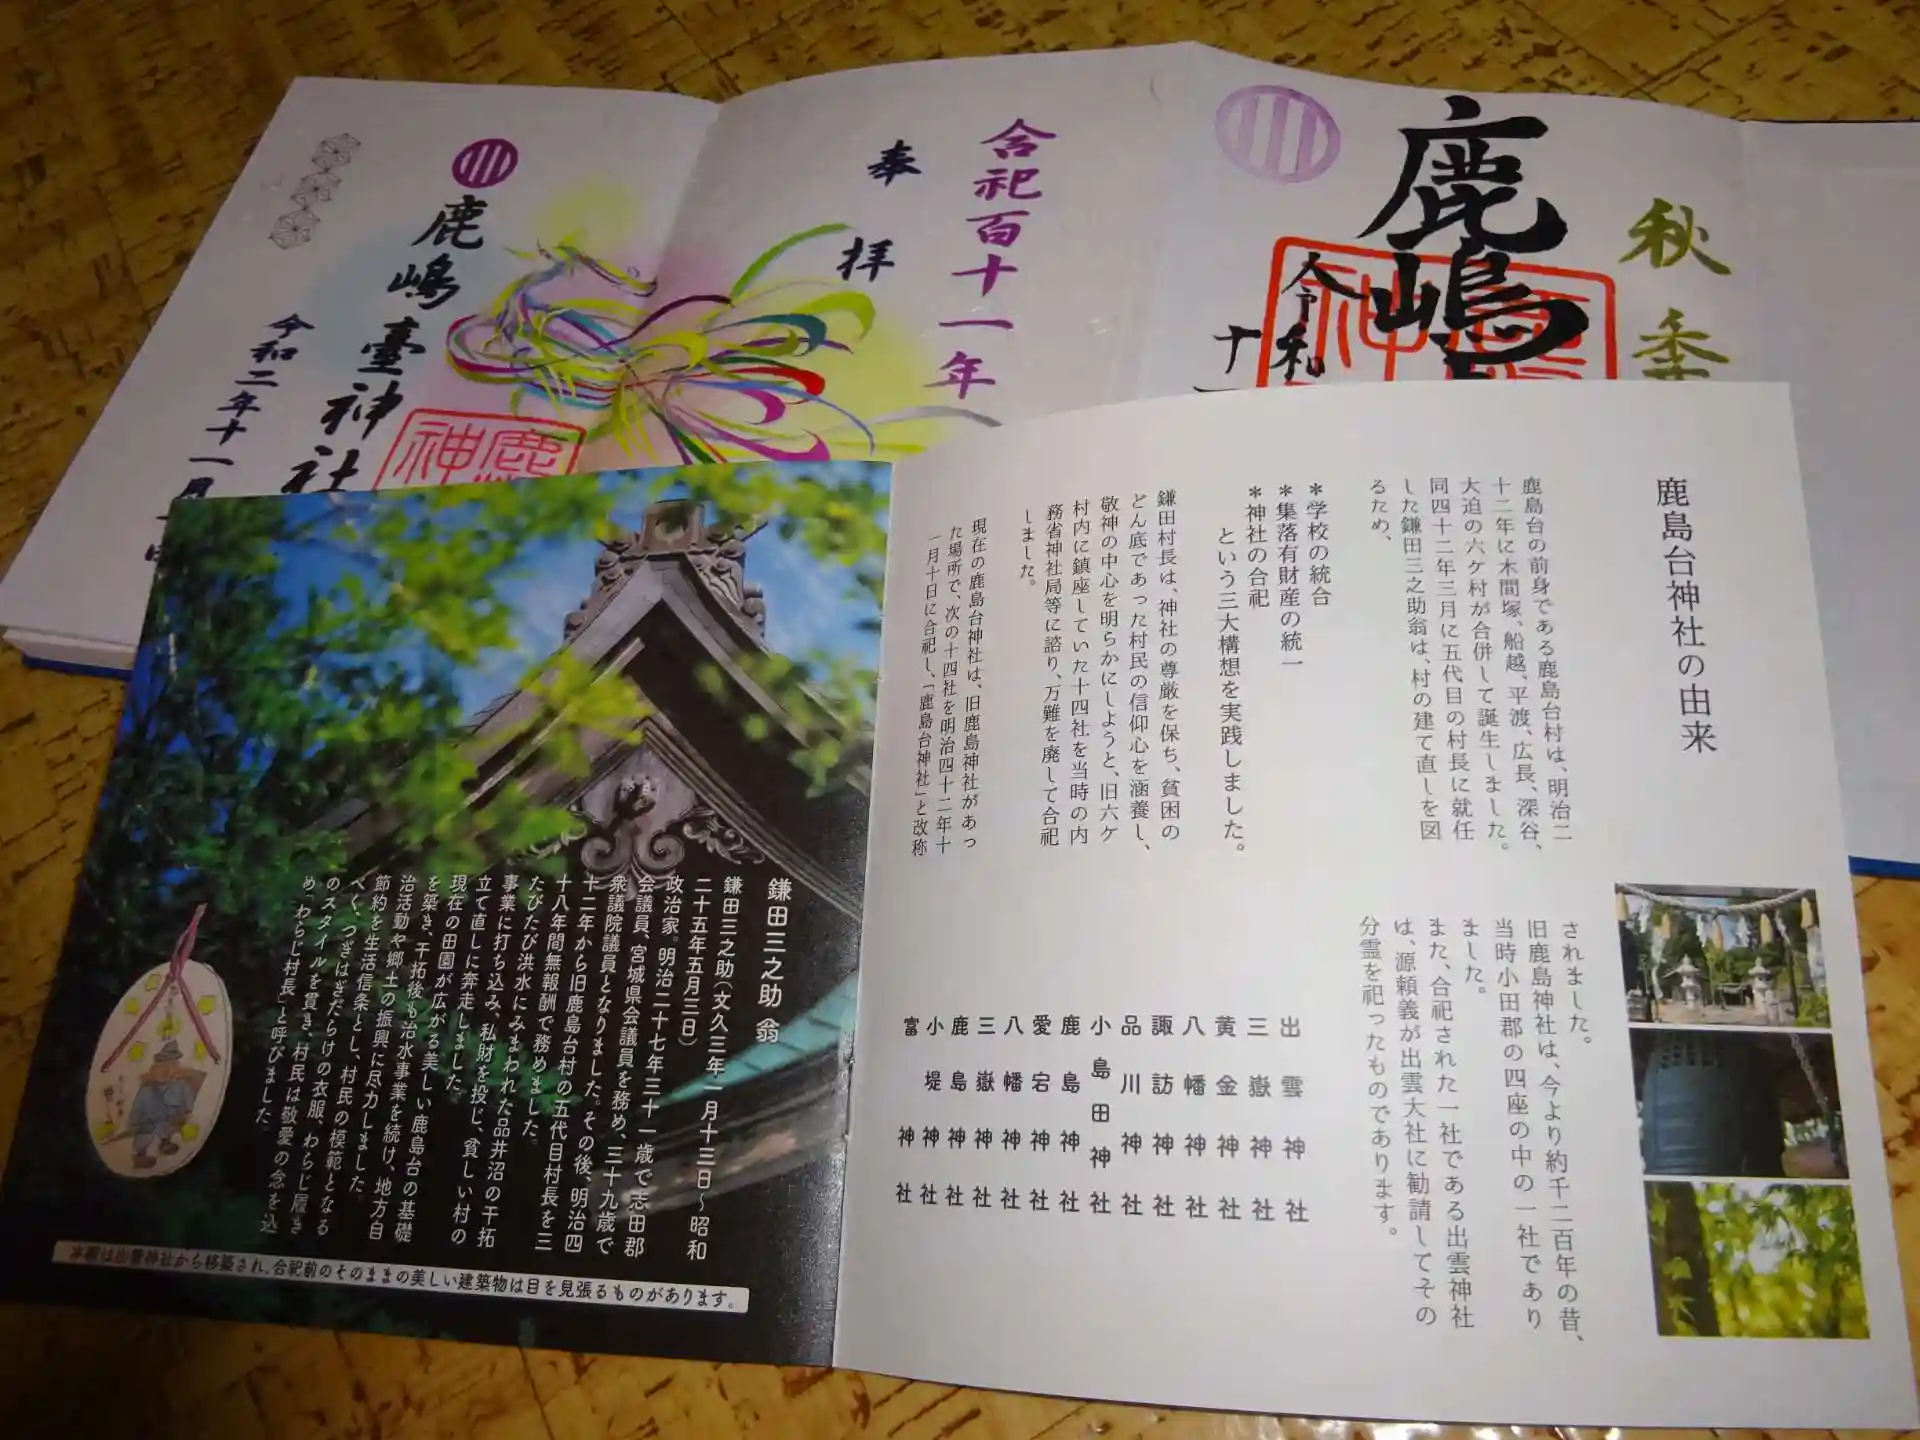 鹿島台神社の由来
鹿島台の前身である鹿島台村は、明治二
十二年に木間塚、船越、平渡、広長、深谷、
大迫の六ケ村が合併して誕生しました。
同四十二年三月に五代目の村長に就任
した鎌田三之助翁は、村の建て直しを図
るため、
＊学校の統合
＊集落有財産の統一
＊神社の合祀
という三大構想を実践しました。
鎌田村長は、神社の尊厳を保ち、貧困の
どん底であった村民の信仰心を涵養し、
敬神の中心を明らかにしようと、旧六ケ
村内に鎮座していた十四社を当時の内
務省神社局等に諮り、万難を廃して合祀
しました。
現在の鹿島台神社は、旧鹿島神社があっ
た場所で、次の十四社を明治四十二年十
一月十日に合祀し、「鹿島台神社」と改称
されました。
旧鹿島神社は、今より約千二百年の昔、
当時小田郡の四座の中の一社であり
ました。
また、合祀された一社である出雲神社
は、源頼義が出雲大社に勧請してその
分霊を祀ったものであります。
出雲神社
三嶽神社
黄金神社
八幡神社
諏訪神社
品川神社
小島田神社
鹿島神社
愛宕神社
八幡神社
三嶽神社
鹿島神社
小堤神社
富神社
鎌田三之助 翁
鎌田三之助（文久三年一月十三日～昭和
二十五年五月三日）
政治家。明治二十七年三十一歳で志田郡
会議員、宮城県会議員を務め、三十九歳で
衆議院議員となりました。その後、明治四
十二年から旧鹿島台村の五代目村長を三
十八年間無報酬で務めました。
たびたび洪水にみまわれた品井沼の干拓
事業に打ち込み、私財を投じ、貧しい村の
立て直しに奔走しました。
現在の田園が広がる美しい鹿島台の基礎
を築き、干拓後も治水事業を続け、地方自
治活動や郷土の振興に尽力しました。
節約を生活信条とし、村民の模範となる
べく、つぎはぎだらけの衣服、わらじ履き
のスタイルを貫き、村民は敬愛の念を込
め「わらじ村長」と呼びました。
本殿は出雲神社から移築され、合祀前のそのままの美しい建築物は目を見張るものがあります。
秋季
鹿嶋
令和
十一
神鹿
合祀百十一年
奉拝
鹿嶋臺神社
令和二年十一月
神鹿